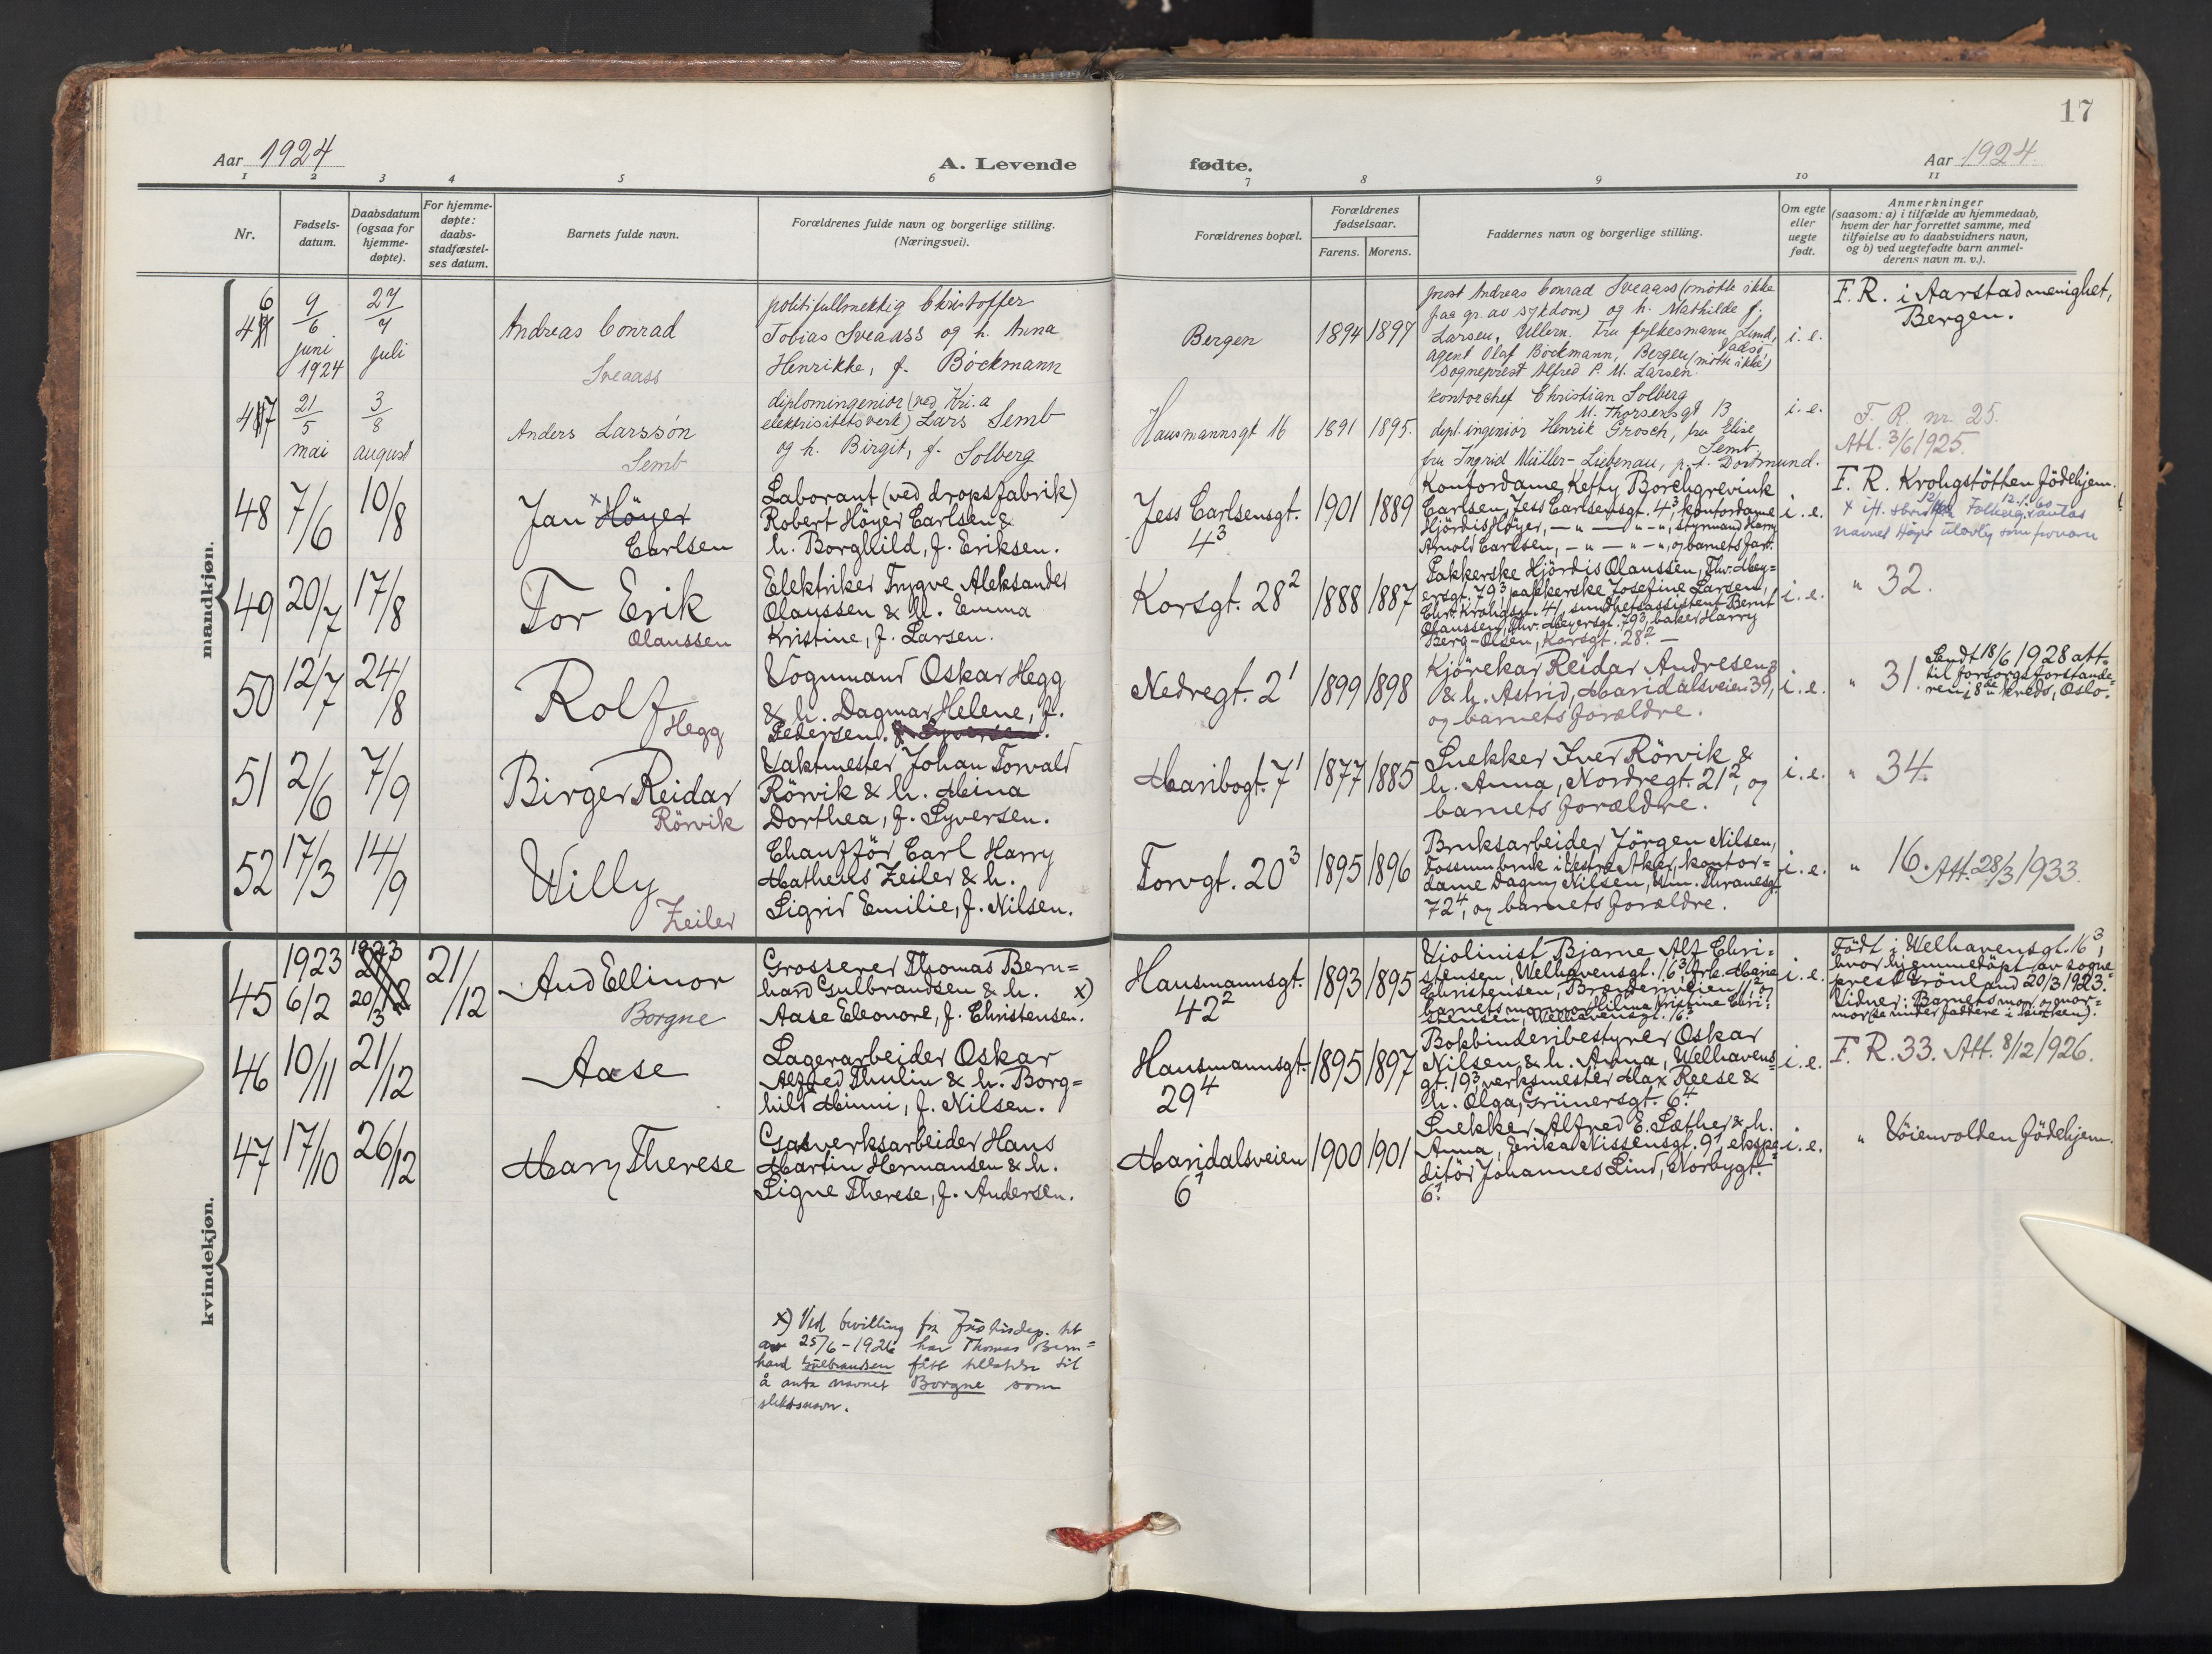 17
Aar 1924
A. Levende
fødte.
Aar 1924.
1 2 3 4 5 6 7 8 9 10 11
Nr.
Fødsels-
datum.
Daabsdatum
(ogsaa for
hjemme-
døpte).
For hjemme-
døpte:
daabs-
stadfæstel-
ses datum.
Barnets fulde navn.
Forældrenes fulde navn og borgerlige stilling.
(Næringsvei).
Forældrenes bopæl.
Forældrenes
fødselsaar.
Farens. Morens.
Faddernes navn og borgerlige stilling.
Om egte
eller
uegte
født.
Anmerkninger
(saasom: a) i tilfælde av hjemmedaab,
hvem der har forrettet samme, med
tilføielse av to daabsvidners navn,
og b) ved uegtefødte barn anmel-
derens navn m. v.).
mandkjøn.
46
9/6
juni
1924
27/7
juli
Andreas Conrad
Sveaass
politifullmektig Christoffer
Tobias Sveaass og h. Anna
Henrikke, f. Böckmann
Bergen
1894 1897
prost Andreas Conrad Sveaass (møtte ikke
paa gr. av sykdom) og h. Mathilde f.
Larsen, Ullern. Fru fylkesmann Lund,
Vadsø
agent Olaf Böckmann, Bergen (møtte ikke)
sogneprest Alfred P. M. Larsen.
i. e.
F. R. i Aarstad menighet,
Bergen.
47
21/5
mai
3/8
august
Anders Larssøn
Semb
diplomingeniør (ved Kri.a
elektrisitetsverk) Lars Semb
og h. Birgit, f. Solberg
Hausmannsgt 16
1891 1895.
kontorchef Christian Solberg
M. Thorsensgt 13
dipl. ingeniør Henrik Grosch, fru Elise
Semb
fru Ingrid Müller-Liebenau, p. t. Dortmund.
i. e.
F. R. nr. 25.
Att. 3/6 1925.
48
7/6
10/8
Jan x Höyer
Carlsen
Laborant (ved dropsfabrik)
Robert Höyer Carlsen &
h. Borghild, f. Eriksen.
Jess Carlsensgt.
4³
1901 1889
Kontordame Ketty Borchgrevink
Carlsen, Jess Carlsensgt. 4³, kontordame
Hjördis Höyer, — " — " — ", styrmand Harry
Arnold Carlsen, — " — " — ", og barnets far.
i. e.
F. R. Krohgstötten födehjem.
navnet Höyer ulovlig som fornavn
49
20/7
17/8
Tor Erik
Olaussen
Elektriker Trygve Aleksander
Olaussen & h. Emma
Kristine, f. Larsen.
Korsgt. 28²
1888 1887
Pakkerske Hjördis Olaussen, Thv. Mey-
ersgt. 79³, pakkerske Josefine Larsen,
Chr. Krohgsgt. 41, sundhetsassistent Bernt
Olaussen, Thv. Meyersgt. 79³, baker Harry
Berg-Olsen, Korsgt. 28². —
i. e.
" 32.
50
12/7
24/8
Rolf
Hegg
Vognmand Oskar Hegg
& h. Dagmar Helene, f.
Pedersen.
Nedregt. 2¹
1899 1898
Kjörekar Reidar Andresen
& h. Astrid, Maridalsveien 39,
og barnets forældre.
i. e.
" 31.
Sendt 18/6 1928 att.
til forsorgsforstande-
ren i 8de kreds, Oslo.
51
2/6
7/9
Birger Reidar
Rörvik
Vaktmester Johan Torvald
Rörvik & h. Mina
Dorthea, f. Syversen.
Maribogt. 7¹
1877 1885
Snekker Iver Rörvik &
h. Anna, Nordregt. 21², og
barnets forældre.
i. e.
" 34.
52
17/3
14/9
Willy
Zeiler
Chafför Carl Harry
Matheus Zeiler & h.
Sigrid Emilie, f. Nilsen.
Torvgt. 20³
1895 1896
Bruksarbeider Jörgen Nilsen,
Fossumbruk i Vestre Aker, kontor-
dame Dagny Nilsen, Um. Thranesgt.
72⁴, og barnets forældre.
i. e.
" 16. Att. 28/3 1933.
kvindekjøn.
45
1923
6/2
1923
20/3
21/12
Aud Ellinor
Borgne
Grosserer Thomas Bern-
hard Gulbrandsen & h. x)
Aase Eleonore, f. Christensen.
Hausmannsgt.
42²
1893 1895
Violinist Bjarne Alf Chri-
stensen, Welhavensgt. 16³, frk. Marie
Christensen, Brænderiveien 11², og
barnets mormor Hilma Kristine Chri-
stensen, Welhavensgt. 16³.
i. e.
Födt i Welhavensgt. 16³,
hvor hjemmedöpt av sogne-
prest Grönland 20/3 1923.
Vidner: Barnets mor og mor-
mor (se under faddere i kirken).
46
10/11
21/12
Aase
Lagerarbeider Oskar
Alfred Thulin & h. Borg-
hild Minni, f. Nilsen.
Hausmannsgt.
29⁴
1895 1897
Bokbinderibestyrer Oskar
Nilsen & h. Anna, Welhavens-
gt. 19³, verksmester Max Reese &
h. Olga, Grünersgt. 6⁴.
i. e.
F. R. 33. Att. 8/12 1926.
47
17/10
26/12
Mary Therese
Gasverksarbeider Hans
Martin Hermansen & h.
Signe Therese, f. Andersen.
Maridalsveien
6¹
1900 1901
Snekker Alfred E. Sæther & h.
Anna, Erika Nissensgt. 9¹, ekspe-
ditör Johannes Lind, Norbygt.
6¹.
i. e.
" Vöienvolden födehjem.
x) Ved bevilling fra Justisdep. dt
av 25/6-1926 har Thomas Bern-
hard Gulbrandsen fått tillatelse til
å anta navnet Borgne som
slektsnavn.